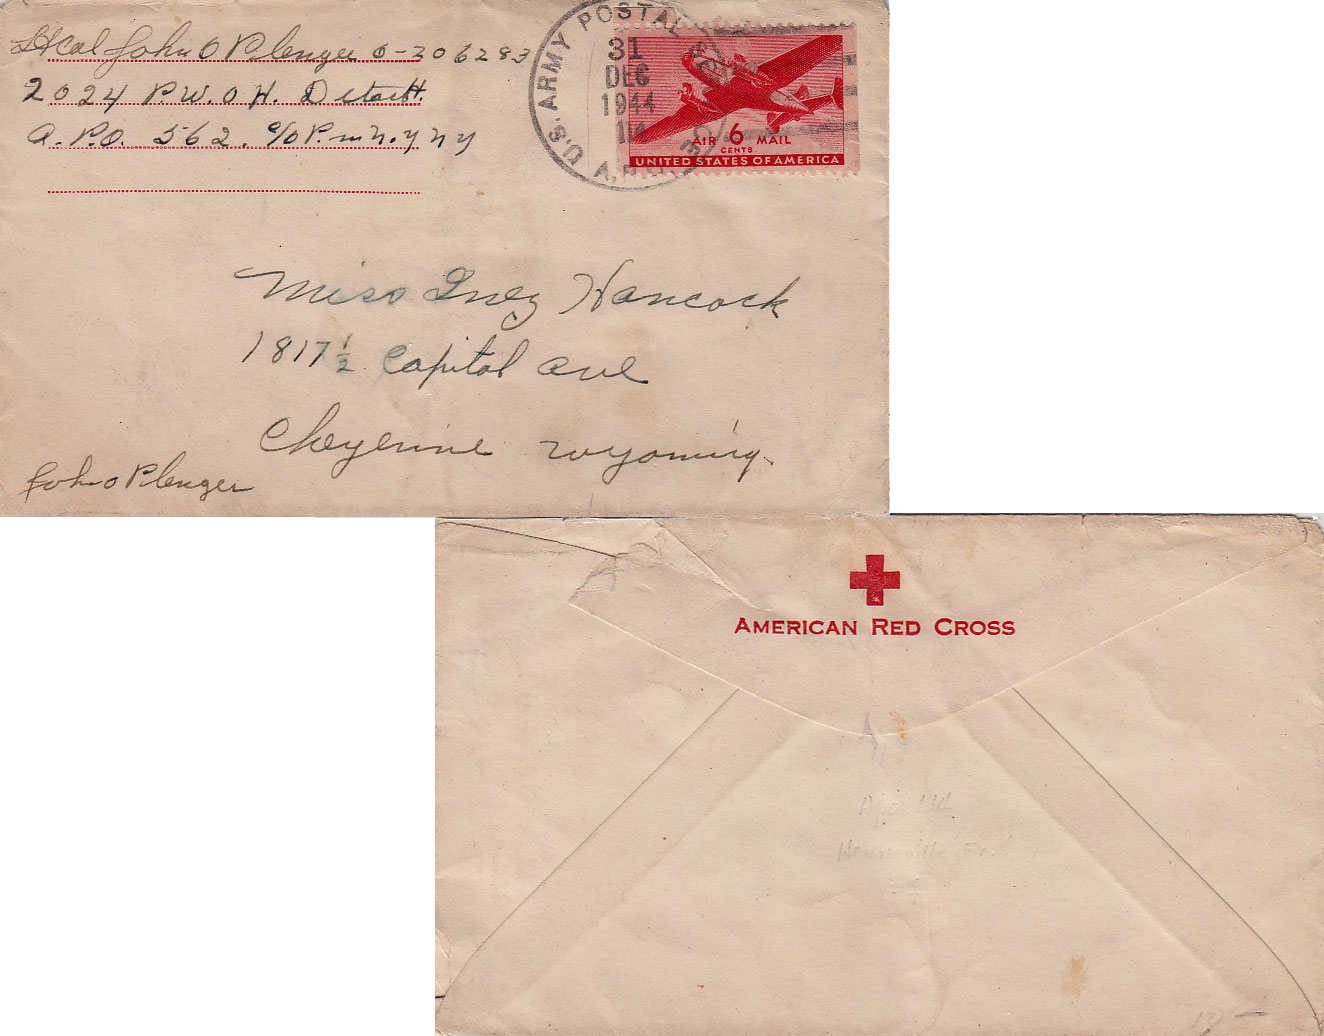 Lt Col John O Plenger O-206283
2024 P.W.O.H. Detach't.
A.P.O. 562. c/o P.m n.y n y
U.S. ARMY POSTAL SERVICE
31
DEC
1944
A.P.O.
AIR 6 MAIL
CENTS
UNITED STATES OF AMERICA
Miss Inez Hancock
1817 1/2 Capitol Ave
Cheyenne Wyoming.
John O Plenger
AMERICAN RED CROSS